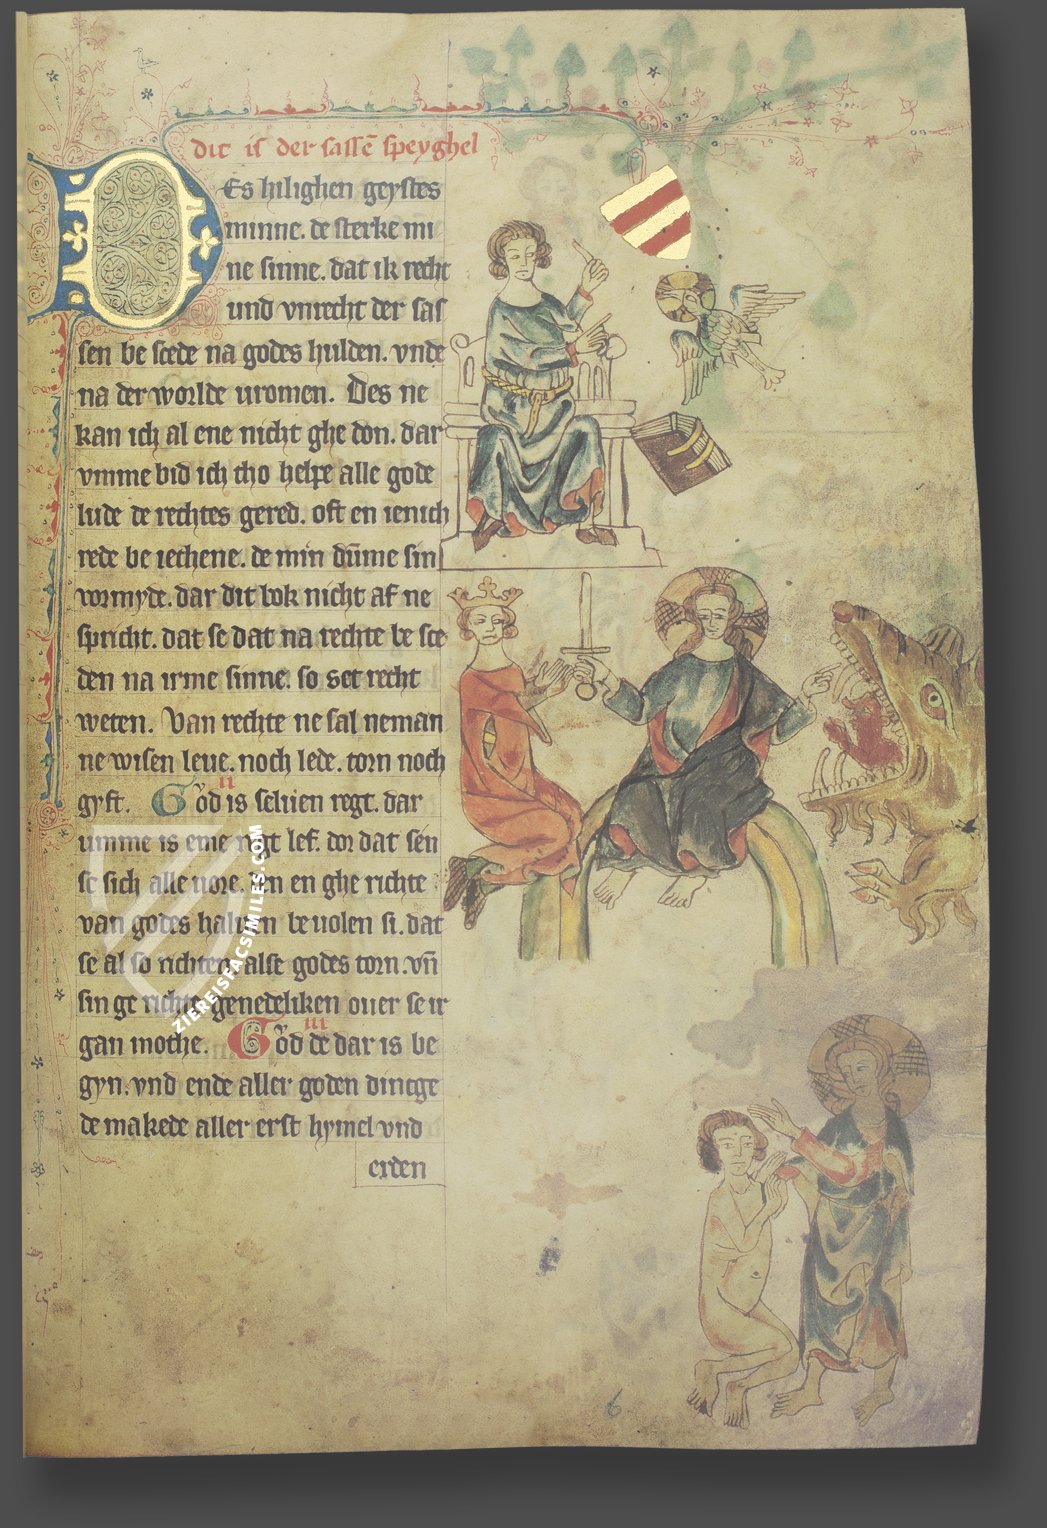 dit is der sassē speyghel
DEs hilighen geystes
minne. de sterke mi
ne sinne. dat ik recht
und vnrecht der sas
sen be scede na godes hulden. vnde
na der worlde uromen. Des ne
kan ich al ene nicht ghe don. dar
vmme bid ich tho helpe alle gode
lude de rechtes gered. oft en ienich
rede be iechene. de min dūme sin
vormyde. dar dit bok nicht af ne
spricht. dat se dat na rechte be sce
den na irme sinne. so set recht
weten. Van rechte ne sal neman
ne wisen leue. noch lede. torn noch
gyft. God is seluen regt. dar
ii
umme is eme regt lef. dor dat sen
se sich alle uore. den en ghe richte
van godes haluen beuolen si. dat
se al so richten alse godes torn. vn̄
sin ge richte genedeliken ouer se ir
gan mothe. God de dar is be
iii
gyn. vnd ende aller goden dincge
de makede aller erst hymel vnd
erden
6
ZIEREISFACSIMILES.COM